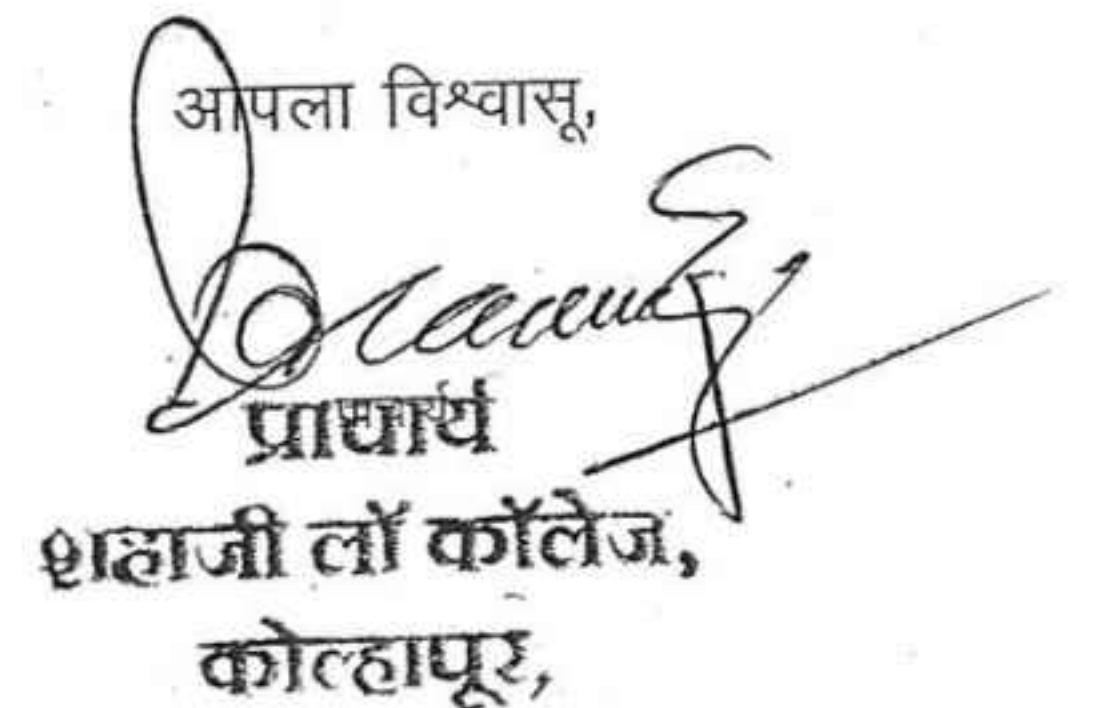 आपला विश्वासू,
प्राचार्य
शहाजी लॉ कॉलेज,
कोल्हापूर,